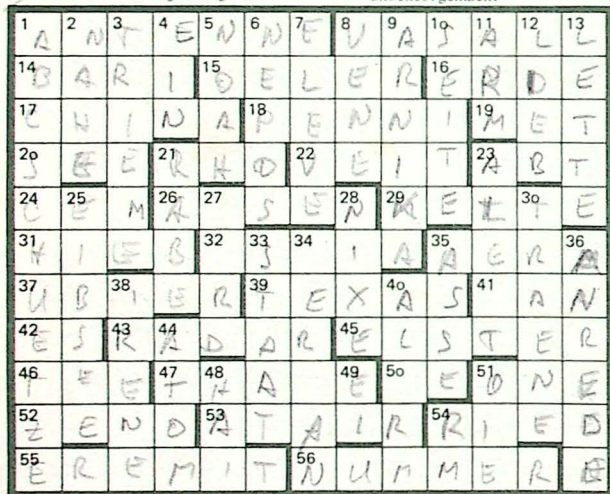 1 A 2 N 3 T 4 E 5 N 6 N 7 E 8 V 9 A 1o S 11 A 12 L 13 L
14 B A R I 15 O E L E R 16 E R D E
17 C H I N A 18 P E N N I 19 M E T
2o S E E 21 R H O 22 V E I T 23 A B T
24 L 25 E M 26 A 27 S E 28 N 29 K E L 3o T E
31 H I E B 32 33 S 34 I A 35 A E R 36 A
37 U B 38 I E R 39 T E X 4o A S 41 A N
42 E S 43 R 44 A D A R 45 E L S T E R
46 T E E 47 T 48 H A 49 E 5o E 51 O N E
52 Z E N D 53 A T A I R 54 R I E D
55 E R E M I T 56 N U M M E R E